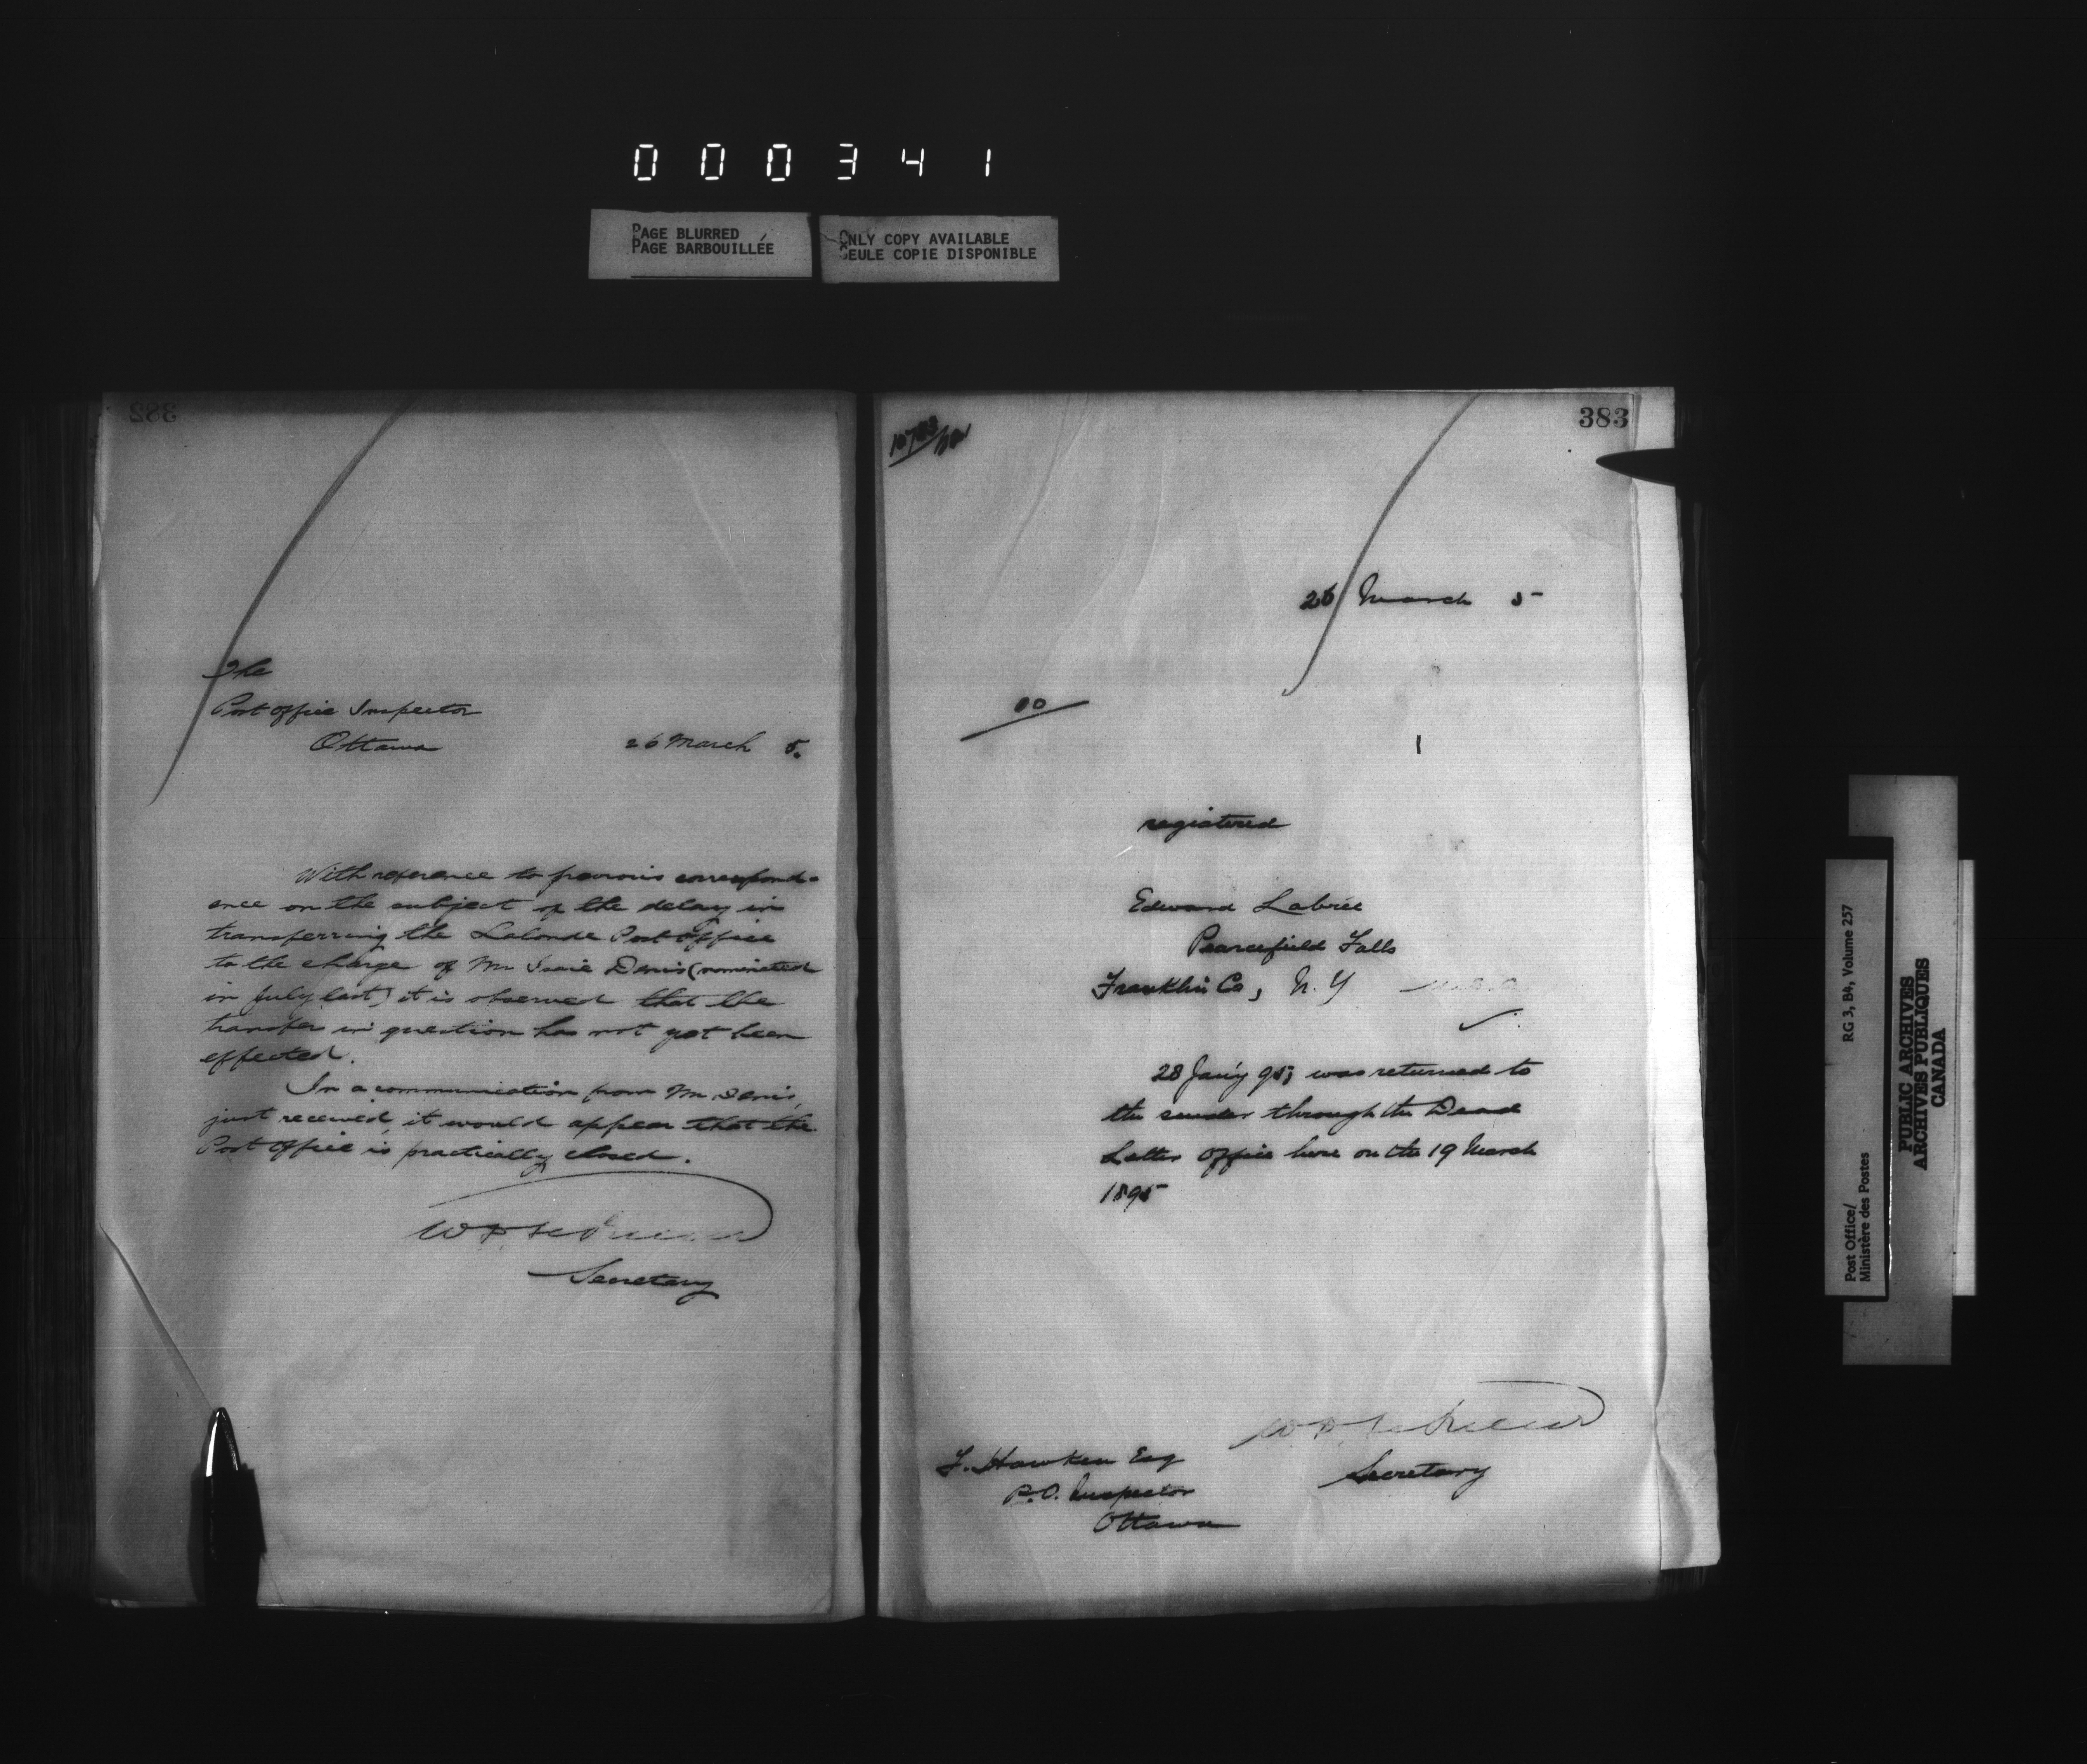 000341
PAGE BLURRED
PAGE BARBOUILLÉE
ONLY COPY AVAILABLE
SEULE COPIE DISPONIBLE
382
The
Post Office Inspector
Ottawa
26 March 5.
With reference to previous correspond-
ence on the subject of the delay in
transferring the Lalonde Post Office
to the charge of Mr Denis (nominated
in July last) it is observed that the
transfer in question has not yet been
effected.
In a communication from Mr Denis,
just received, it would appear that the
Post Office is practically closed.
Secretary
383
26 March 5
00
1
registered
Edward Labrie
Pearcefield Falls
Franklin Co, N. Y
28 Jan'y 95, was returned to
the sender through the Dead
Letter Office here on the 19 March
1895
Secretary
F. Hawken Esq
P.O. Inspector
Ottawa
Post Office/
Ministère des Postes
RG 3, B4, Volume 257
PUBLIC ARCHIVES
ARCHIVES PUBLIQUES
CANADA